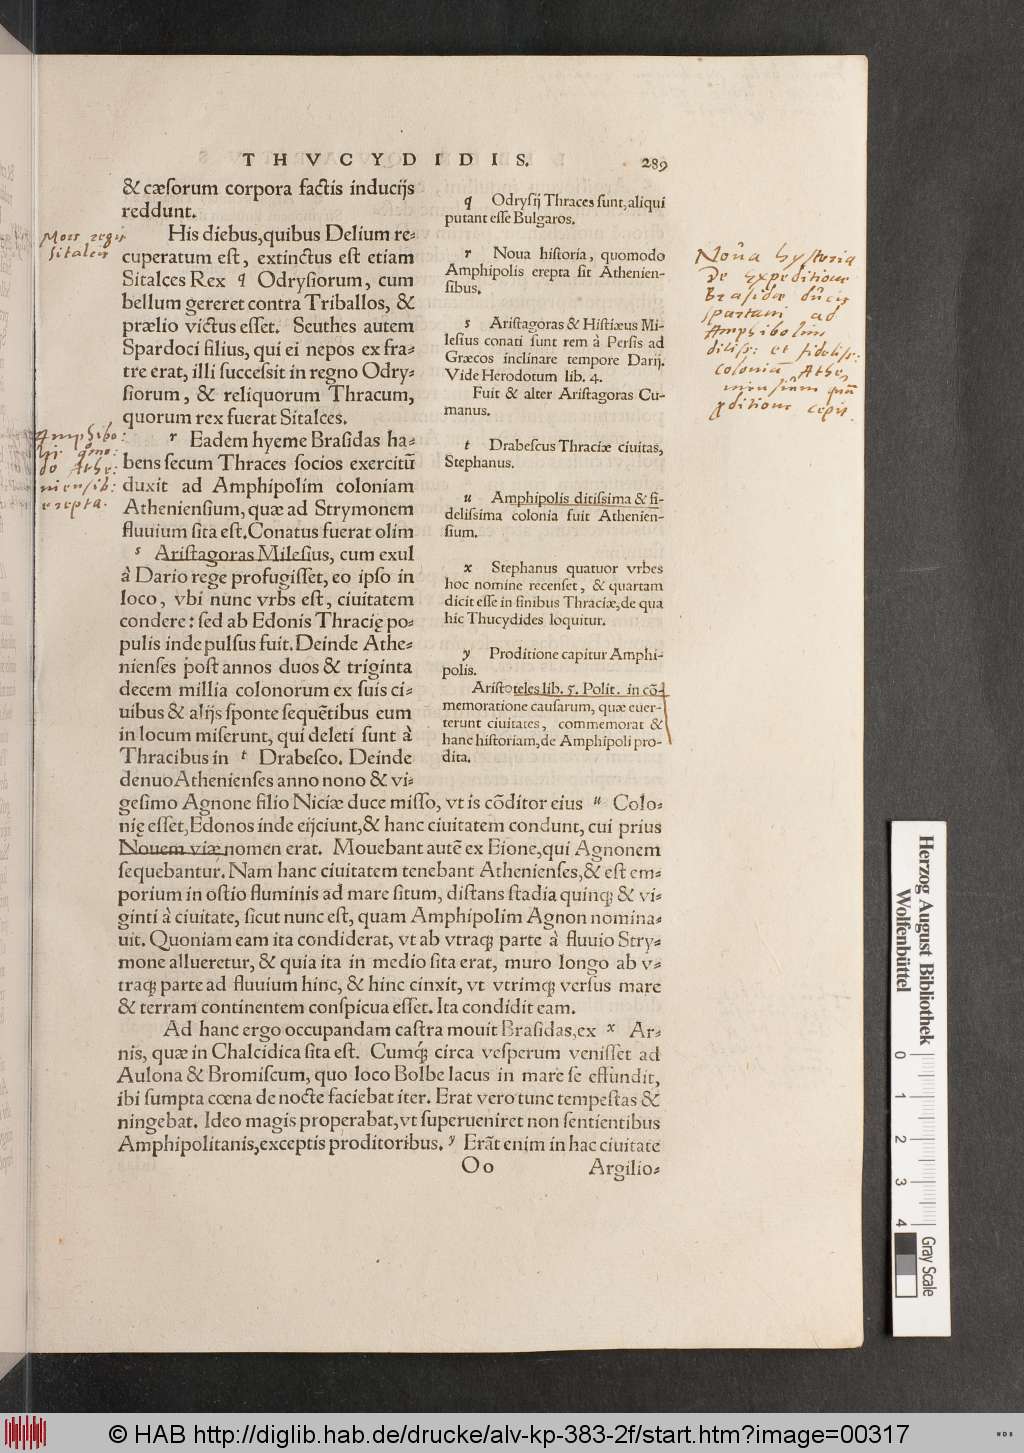 THVCYDIDIS. 289
& cæsorum corpora factis inducijs
reddunt.
His diebus, quibus Delium re=
cuperatum est, extinctus est etiam
Sitalces Rex q Odrysiorum, cum
bellum gereret contra Triballos, &
prælio victus esset. Seuthes autem
Spardoci filius, qui ei nepos ex fra=
tre erat, illi successit in regno Odry=
siorum, & reliquorum Thracum,
quorum rex fuerat Sitalces.
r Eadem hyeme Brasidas ha=
bens secum Thraces socios exercitũ
duxit ad Amphipolim coloniam
Atheniensium, quæ ad Strymonem
fluuium sita est. Conatus fuerat olim
s Aristagoras Milesius, cum exul
à Dario rege profugisset, eo ipso in
loco, vbi nunc vrbs est, ciuitatem
condere: sed ab Edonis Thracię po=
pulis inde pulsus fuit. Deinde Athe=
nienses post annos duos & triginta
decem millia colonorum ex suis ci=
uibus & alijs sponte sequẽtibus eum
in locum miserunt, qui deleti sunt à
Thracibus in t Drabesco. Deinde
denuo Athenienses anno nono & vi=
gesimo Agnone filio Niciæ duce misso, vt is cõditor eius u Colo=
nię esset, Edonos inde eijciunt, & hanc ciuitatem condunt, cui prius
Nouem viæ nomen erat. Mouebant autẽ ex Eione, qui Agnonem
sequebantur. Nam hanc ciuitatem tenebant Athenienses, & est em=
porium in ostio fluminis ad mare situm, distans stadia quinq; & vi=
ginti à ciuitate, sicut nunc est, quam Amphipolim Agnon nomina=
uit. Quoniam eam ita condiderat, vt ab vtraq; parte à fluuio Stry=
mone allueretur, & quia ita in medio sita erat, muro longo ab v=
traq; parte ad fluuium hinc, & hinc cinxit, vt vtrimq; versus mare
& terram continentem conspicua esset. Ita condidit eam.
Ad hanc ergo occupandam castra mouit Brasidas, ex x Ar=
nis, quæ in Chalcidica sita est. Cumq; circa vesperum venisset ad
Aulona & Bromiscum, quo loco Bolbe lacus in mare se effundit,
ibi sumpta cœna de nocte faciebat iter. Erat vero tunc tempestas &
ningebat. Ideo magis properabat, vt superueniret non sentientibus
Amphipolitanis, exceptis proditoribus. y Erãt enim in hac ciuitate
Oo Argilio=
q Odrysij Thraces sunt, aliqui
putant esse Bulgaros.
r Noua historia, quomodo
Amphipolis erepta sit Athenien-
sibus.
s Aristagoras & Histiæus Mi-
lesius conati sunt rem à Persis ad
Græcos inclinare tempore Darij.
Vide Herodotum lib. 4.
Fuit & alter Aristagoras Cu-
manus.
t Drabescus Thraciæ ciuitas,
Stephanus.
u Amphipolis ditissima & fi-
delissima colonia fuit Athenien-
sium.
x Stephanus quatuor vrbes
hoc nomine recenset, & quartam
dicit esse in finibus Thraciæ, de qua
hic Thucydides loquitur.
y Proditione capitur Amphi-
polis.
Aristoteles lib. 5. Polit. in cõ-
memoratione causarum, quæ euer-
terunt ciuitates, commemorat &
hanc historiam, de Amphipoli pro-
dita.
Mors regis
Sitalcis
Amphibo:
lis quo:
do Athe:
niensib:
erepta.
Noua hystoria
De Expeditione
Brasidæ ducis
spartani ad
Amphibolim
ditiss: et fideliss:
coloniã Athe,
niensium quã
proditione cepit.
Herzog August Bibliothek
Wolfenbüttel
0 1 2 3 4
Gray Scale
© HAB http://diglib.hab.de/drucke/alv-kp-383-2f/start.htm?image=00317